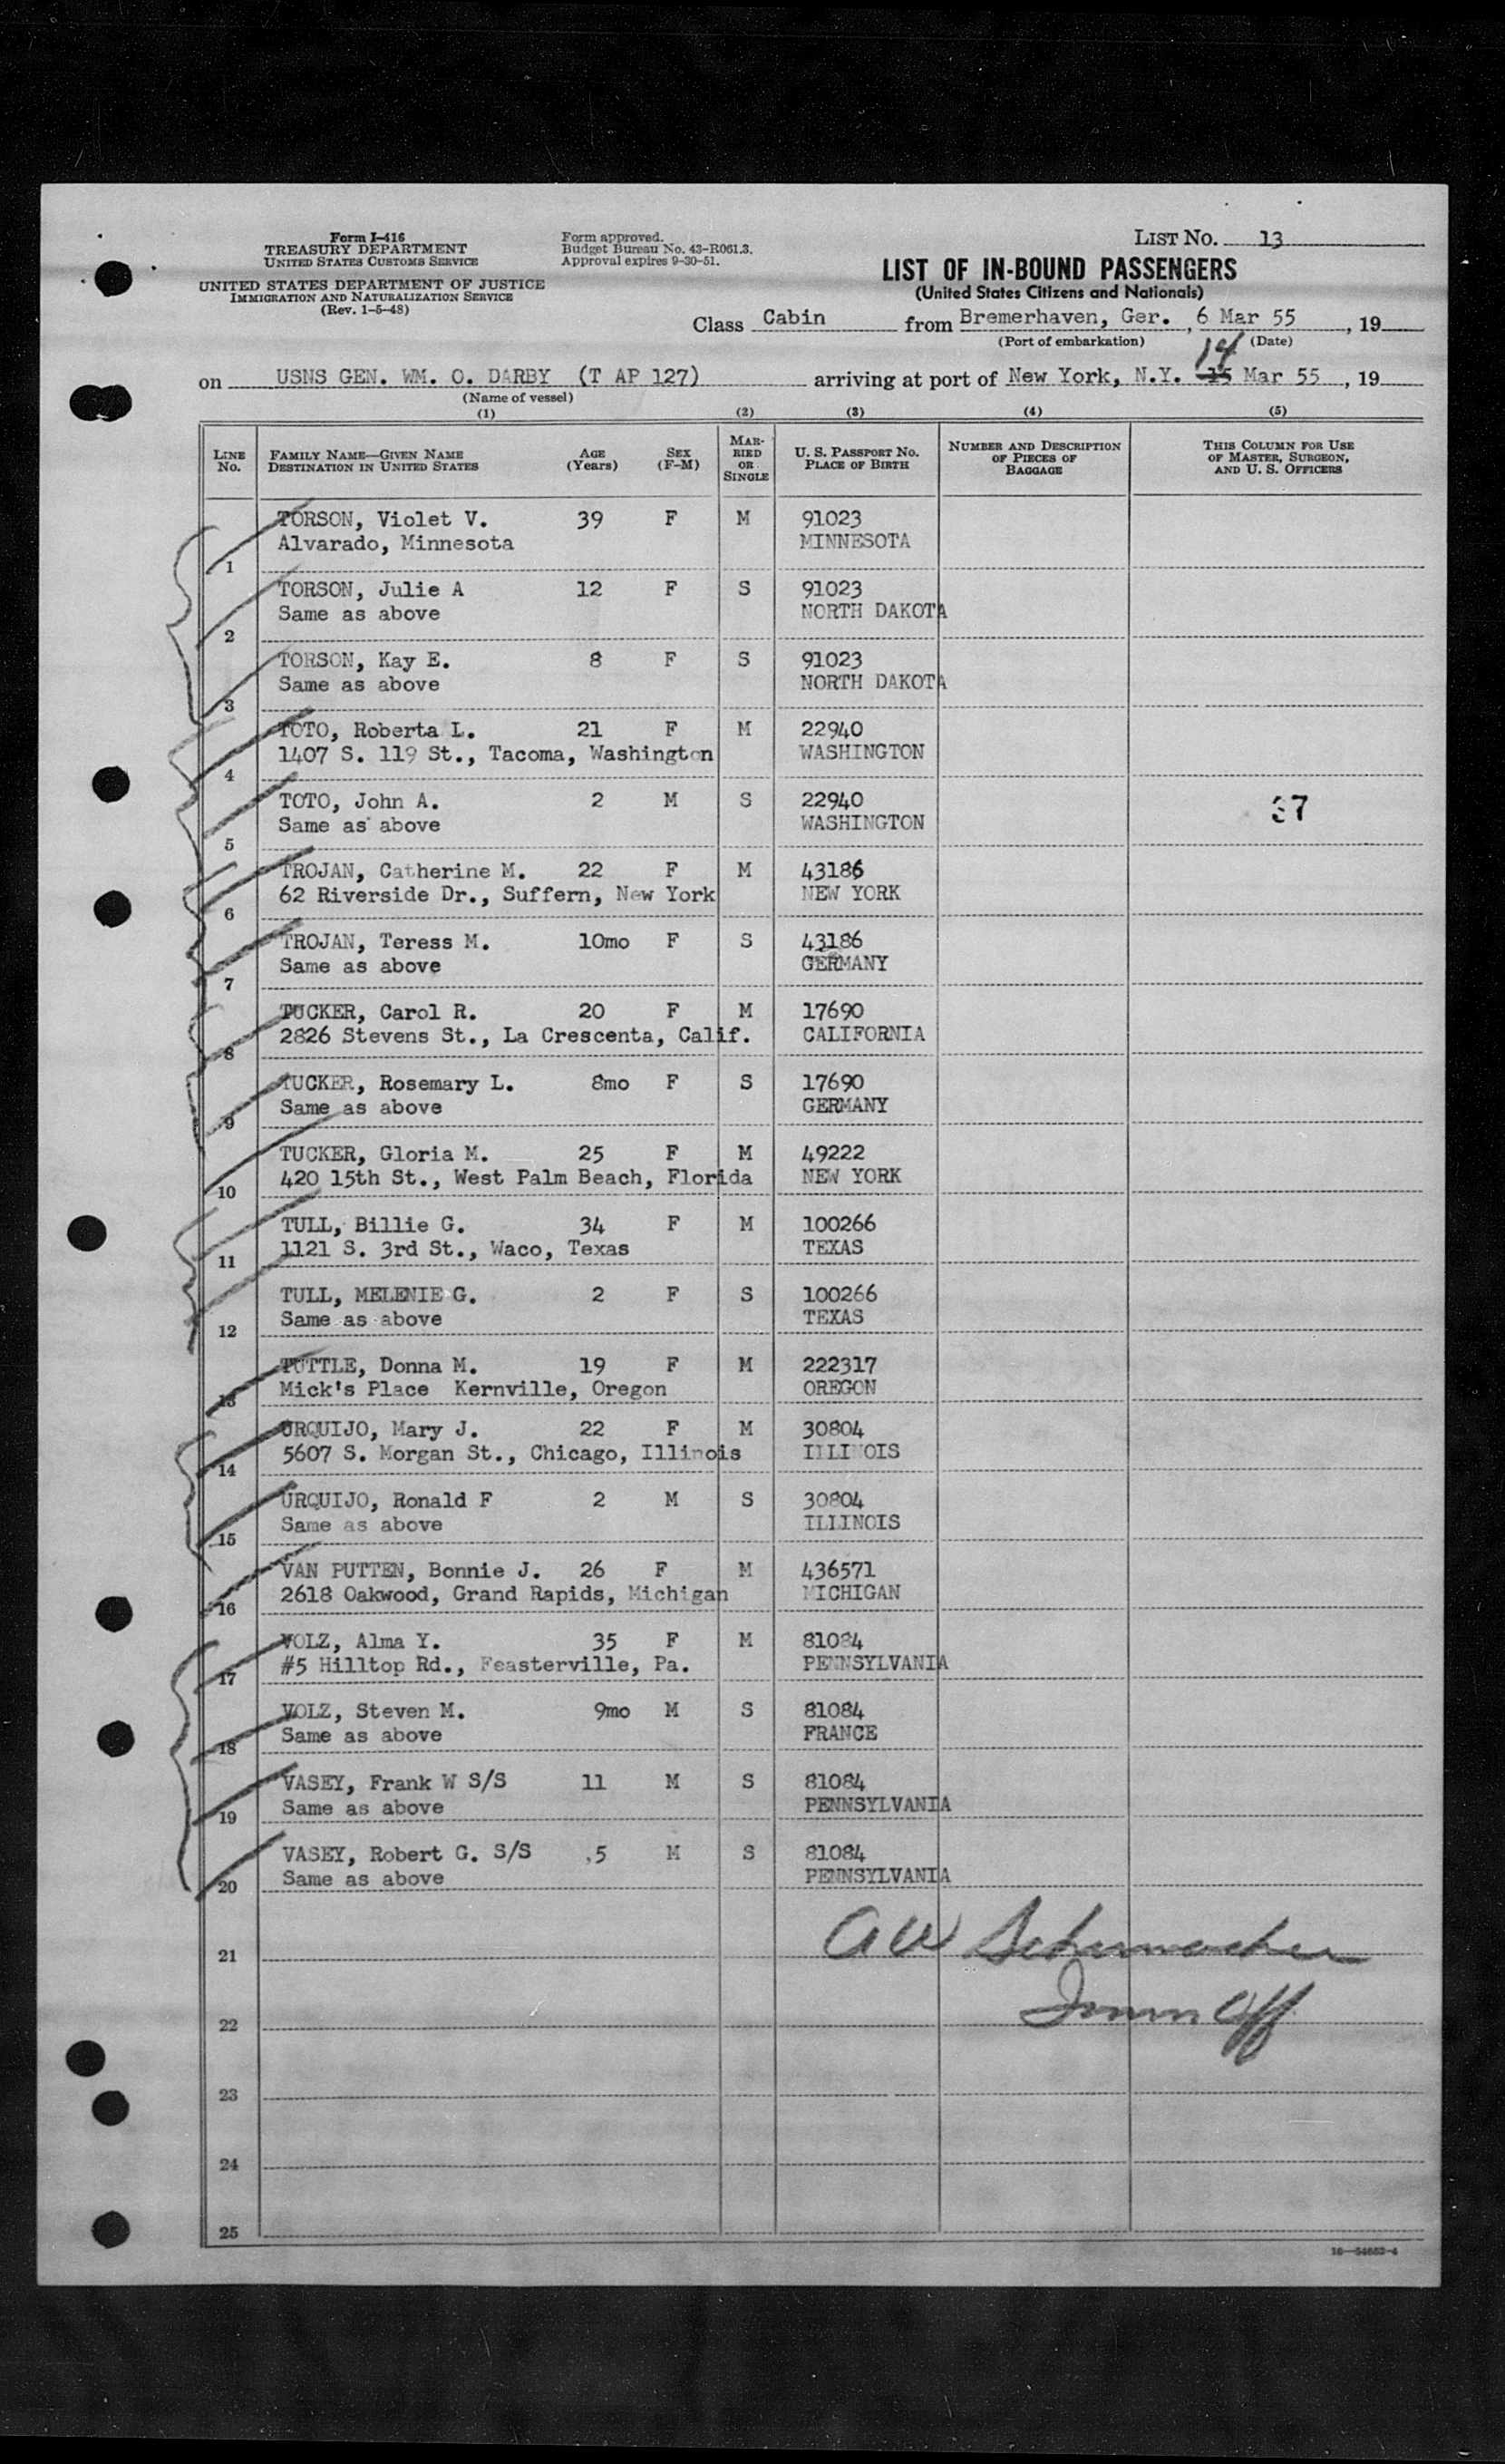 Form I-416
TREASURY DEPARTMENT
UNITED STATES CUSTOMS SERVICE
UNITED STATES DEPARTMENT OF JUSTICE
IMMIGRATION AND NATURALIZATION SERVICE
(Rev. 1-5-48)
Form approved.
Budget Bureau No. 43-R061.3.
Approval expires 9-30-51.
LIST NO. 13
LIST OF IN-BOUND PASSENGERS
(United States Citizens and Nationals)
Class Cabin from Bremerhaven, Ger. , 6 Mar 55 , 19
(Port of embarkation) (Date)
14
on USNS GEN. WM. O. DARBY (T AP 127) arriving at port of New York, N.Y. 15 Mar 55 , 19
(Name of vessel)
(1) (2) (3) (4) (5)
LINE NO. FAMILY NAME—GIVEN NAME DESTINATION IN UNITED STATES AGE (YEARS) SEX (F-M) MARRIED OR SINGLE U. S. PASSPORT NO. PLACE OF BIRTH NUMBER AND DESCRIPTION OF PIECES OF BAGGAGE THIS COLUMN FOR USE OF MASTER, SURGEON, AND U. S. OFFICERS
TORSON, Violet V. 39 F M 91023
1 Alvarado, Minnesota MINNESOTA
TORSON, Julie A 12 F S 91023
2 Same as above NORTH DAKOTA
TORSON, Kay E. 8 F S 91023
3 Same as above NORTH DAKOTA
TOTO, Roberta L. 21 F M 22940
4 1407 S. 119 St., Tacoma, Washington WASHINGTON
TOTO, John A. 2 M S 22940 37
5 Same as above WASHINGTON
TROJAN, Catherine M. 22 F M 43186
6 62 Riverside Dr., Suffern, New York NEW YORK
TROJAN, Teress M. 10mo F S 43186
7 Same as above GERMANY
TUCKER, Carol R. 20 F M 17690
8 2826 Stevens St., La Crescenta, Calif. CALIFORNIA
TUCKER, Rosemary L. 8mo F S 17690
9 Same as above GERMANY
TUCKER, Gloria M. 25 F M 49222
10 420 15th St., West Palm Beach, Florida NEW YORK
TULL, Billie G. 34 F M 100266
11 1121 S. 3rd St., Waco, Texas TEXAS
TULL, MELENIE G. 2 F S 100266
12 Same as above TEXAS
TUTTLE, Donna M. 19 F M 222317
13 Mick's Place Kernville, Oregon OREGON
URQUIJO, Mary J. 22 F M 30804
14 5607 S. Morgan St., Chicago, Illinois ILLINOIS
URQUIJO, Ronald F 2 M S 30804
15 Same as above ILLINOIS
VAN PUTTEN, Bonnie J. 26 F M 436571
16 2618 Oakwood, Grand Rapids, Michigan MICHIGAN
VOLZ, Alma Y. 35 F M 81084
17 #5 Hilltop Rd., Feasterville, Pa. PENNSYLVANIA
VOLZ, Steven M. 9mo M S 81084
18 Same as above FRANCE
VASEY, Frank W S/S 11 M S 81084
19 Same as above PENNSYLVANIA
VASEY, Robert G. S/S 5 M S 81084
20 Same as above PENNSYLVANIA
21 A W Schumacher
22 Imm Off
23
24
25
16—54652-4